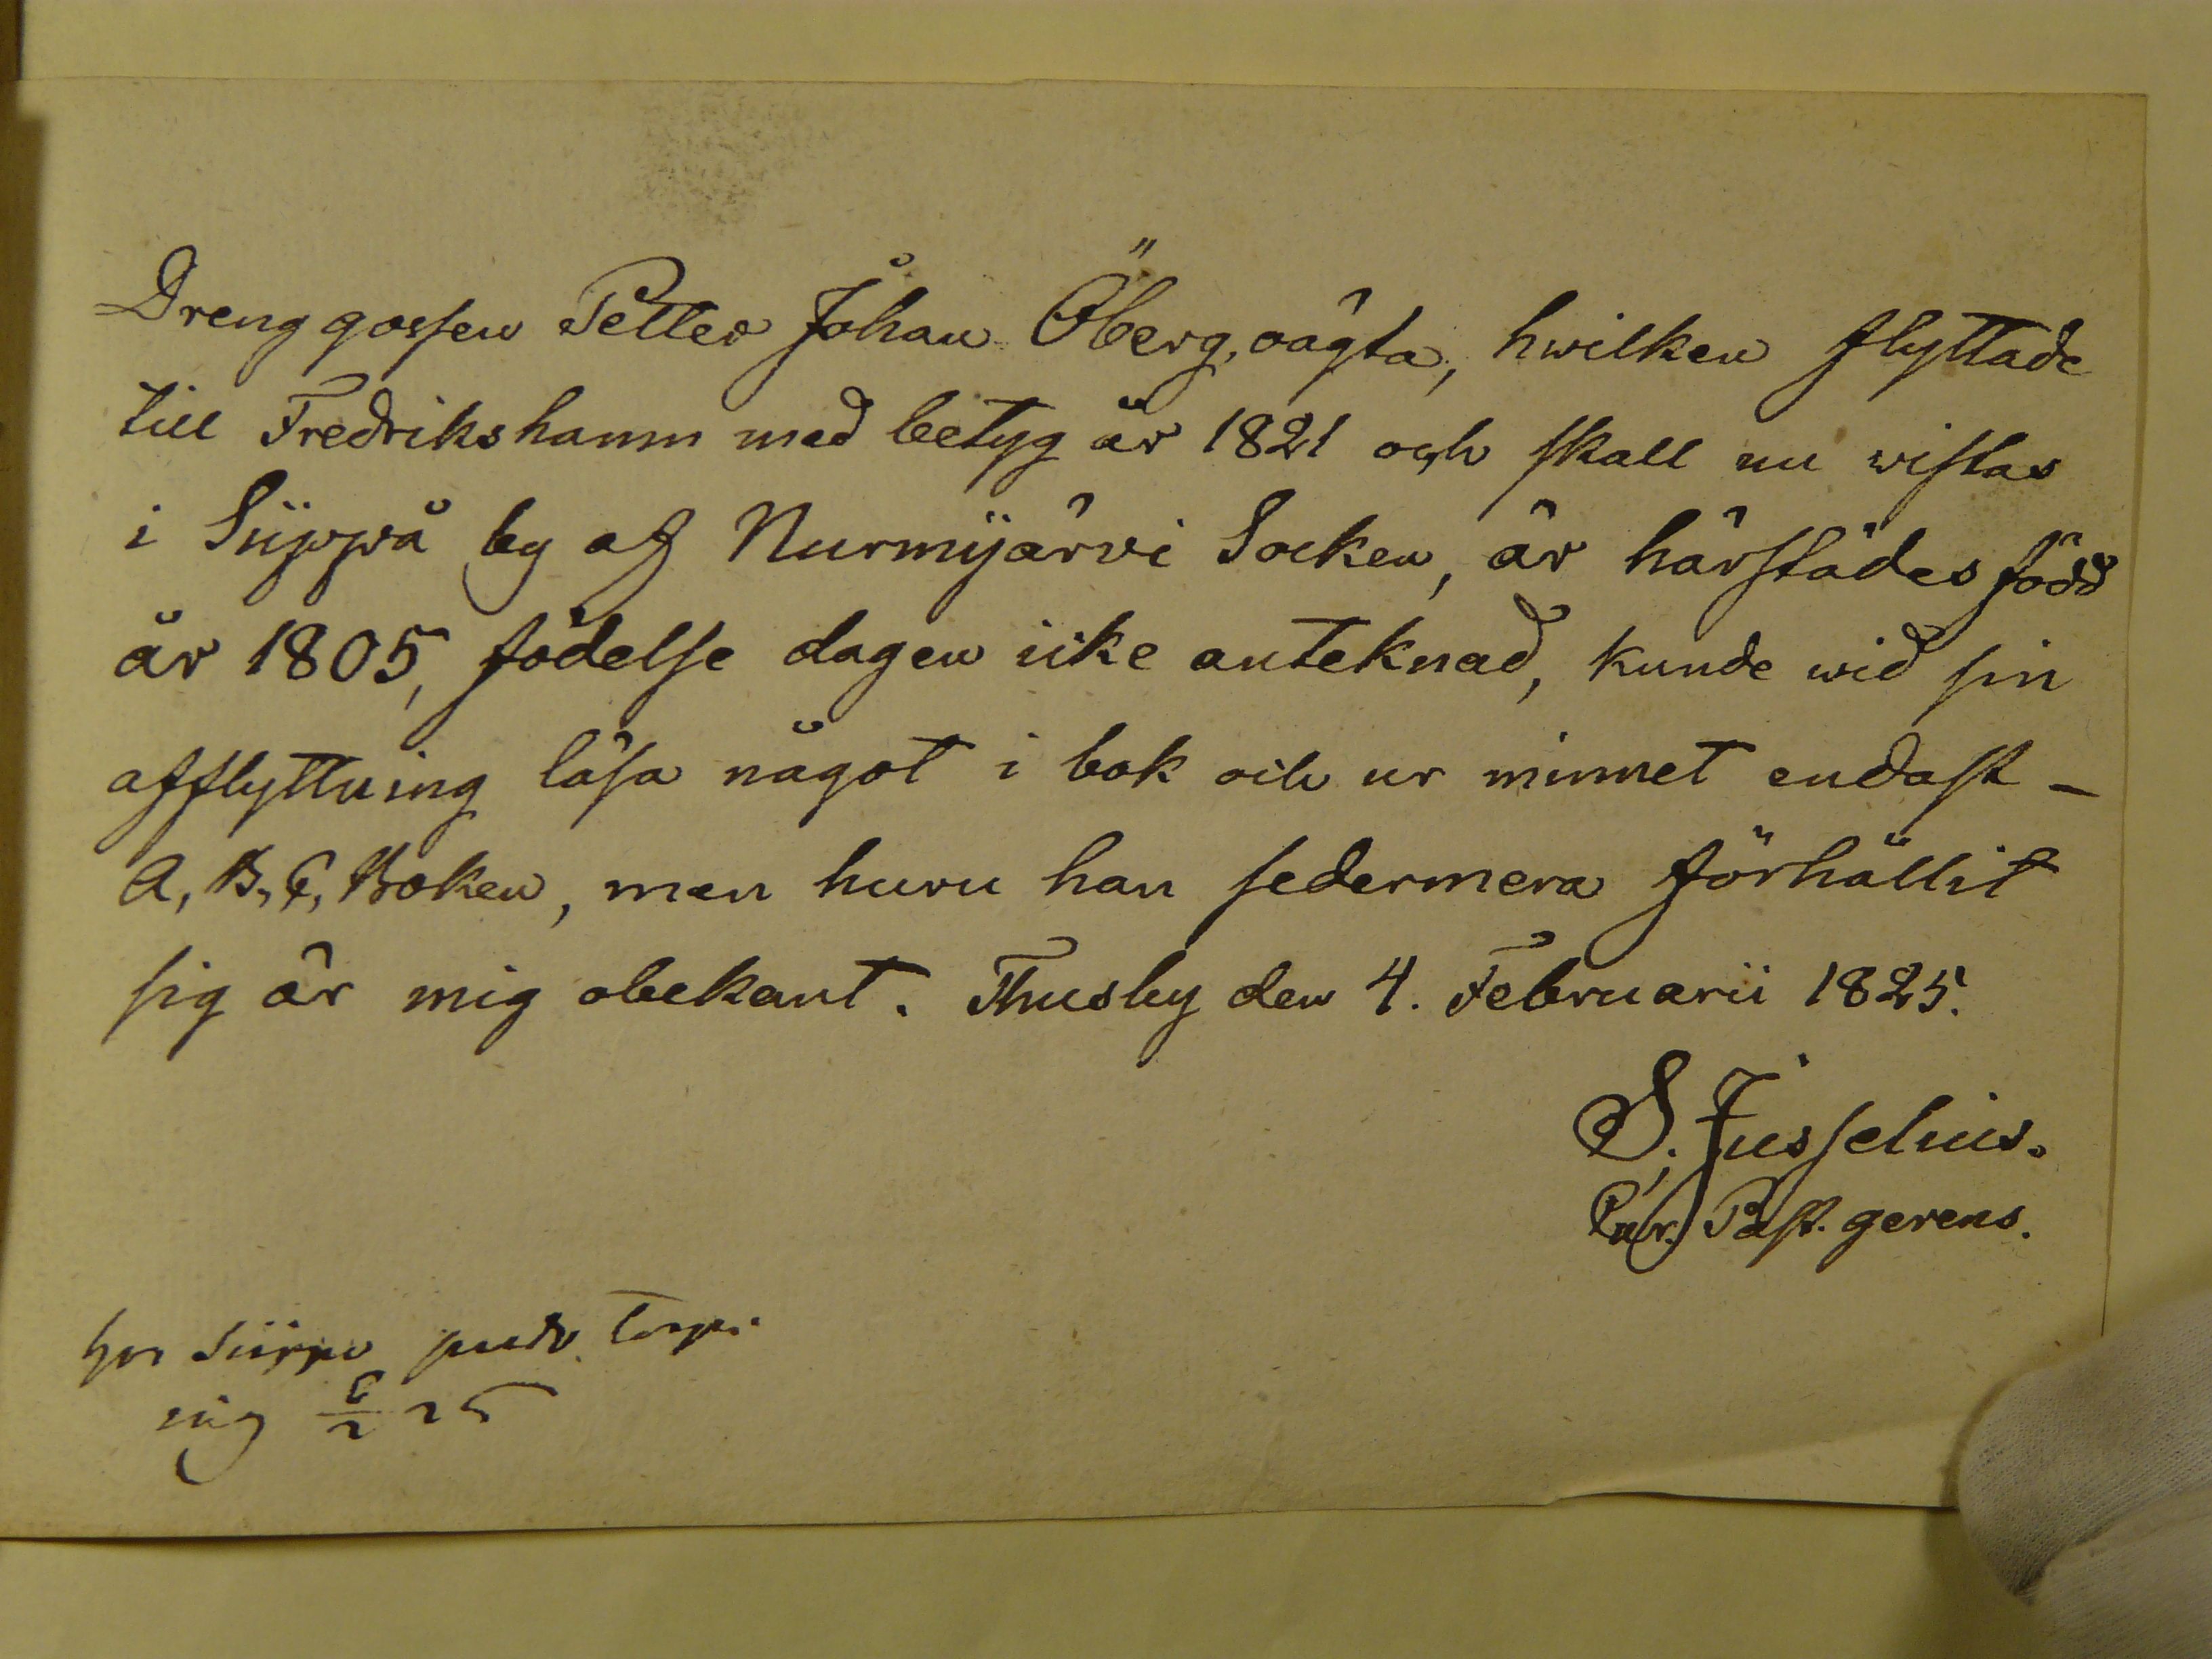 Dreng gossen Petter Johan Öberg, oägta, hwilken flyttade
till Fredrikshamn med betyg år 1821 och skall nu wistas
i Siippå by af Nurmijärvi Socken, är härstädes född
år 1805, födelse dagen icke anteknad, kunde wid sin
afflyttning läsa något i bok och ur minnet endast -
A, B, C, Boken, men huru han sedermera förhållit
sig är mig obekant. Thusby den 4. Februarii 1825.
S. Jusselius.
Past. gerens.
Siippo
25